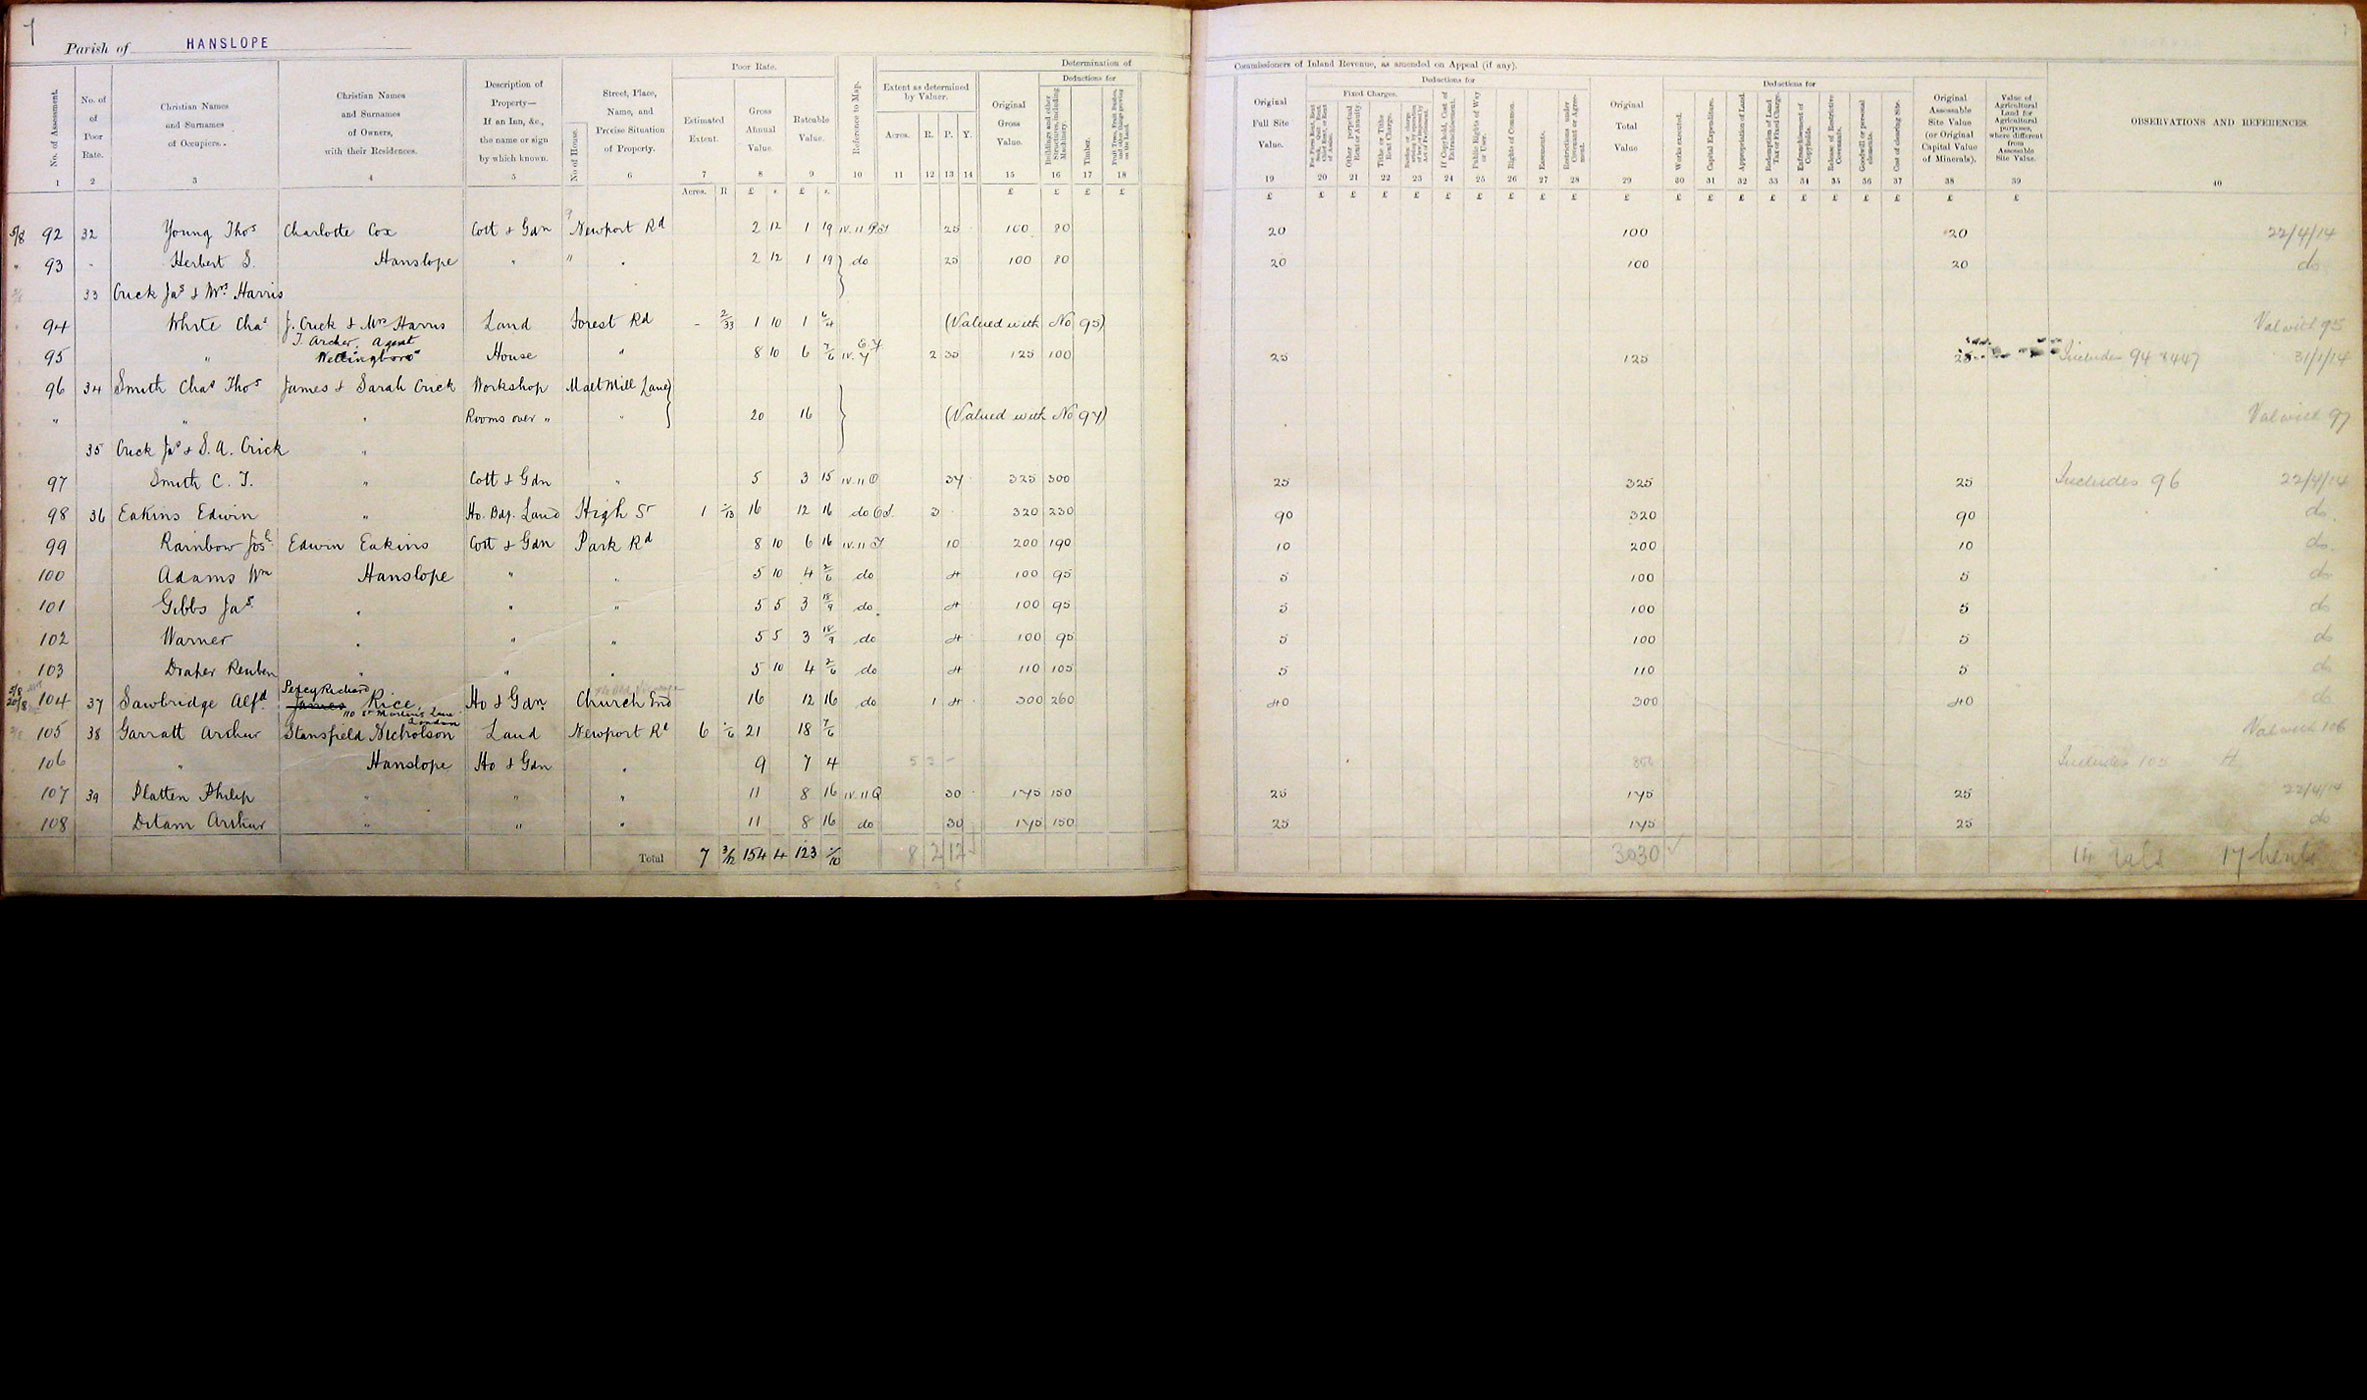 7
Parish of HANSLOPE
No. of Assessment. 1
No. of Poor Rate. 2
Christian Names and Surnames of Occupiers. 3
Christian Names and Surnames of Owners, with their Residences. 4
Description of Property— If an Inn, &c., the name or sign by which known. 5
No of House.
Street, Place, Name, and Precise Situation of Property. 6
Poor Rate.
Estimated Extent. 7 Acres. R
Gross Annual Value. 8 £ s.
Rateable Value. 9 £ s.
Reference to Map. 10
Extent as determined by Valuer. Acres. R. P. Y. 11 12 13 14
Determination of
Original Gross Value. 15 £
Deductions for
Buildings and other Structures, including Machinery. 16 £
Timber. 17 £
Fruit Trees, Fruit Bushes, and other things growing on the land. 18 £
Commissioners of Inland Revenue, as amended on Appeal (if any).
Original Full Site Value. 19 £
Deductions for
Fixed Charges.
20 £
Other perpetual Rent or Annuity. 21 £
Tithe or Tithe Rent Charge. 22 £
23 £
If Copyhold, Cost of Enfranchisement. 24 £
Public Rights of Way or User. 25 £
Rights of Common. 26 £
Easements. 27 £
Restrictions under Covenant or Agreement. 28 £
Original Total Value 29 £
Deductions for
Works executed. 30 £
Capital Expenditure. 31 £
Appropriation of Land. 32 £
Redemption of Land Tax or Fixed Charge. 33 £
Enfranchisement of Copyholds. 34 £
Release of Restrictive Covenants. 35 £
Goodwill or personal elements. 36 £
Cost of clearing Site. 37 £
Original Assessable Site Value (or Original Capital Value of Minerals). 38 £
Value of Agricultural Land for Agricultural purposes, where different from Assessable Site Value. 39 £
OBSERVATIONS AND REFERENCES. 40
5/8 92 32 Young Thos Charlotte Cox Cott & Gdn Newport Rd 2 12 1 19 25 100 80 20 100 20 22/4/14
" 93 - Herbert S. Hanslope " " " 2 12 1 19 do 25 100 80 20 100 20 do
33 Crick Jas & Mrs Harris
94 White Chas J. Crick & Mrs Harris Land Forest Rd - 2/33 1 10 1 (Valued with No 95) Val with 95
T. Archer, Agent
95 " Wellingboro' House " 8 10 6 7/6 2 35 125 100 25 125 25 Includes 94 & 447 31/1/14
96 34 Smith Chas Thos James & Sarah Crick Workshop Malt Mill Lane
" " " Rooms over " " 20 16 (Valued with No 97) Val with 97
35 Crick Jas & S. A. Crick "
97 Smith C. T. " Cott & Gdn " 5 3 15 34 325 300 25 325 25 Includes 96 22/4/14
98 36 Eakins Edwin " Ho. Bdg. Land High St 1 -/13 16 12 16 do 3 320 230 90 320 90 do
99 Rainbow Josh Edwin Eakins Cott & Gdn Park Rd 8 10 6 16 10 200 190 10 200 10 do
100 Adams Wm Hanslope " " 5 10 4 2/6 do 4 100 95 5 100 5 do
101 Gibbs Jas " " " 5 5 3 18/9 do 4 100 95 5 100 5 do
102 Warner " " " 5 5 3 18/9 do 4 100 95 5 100 5 do
103 Draper Reuben " " " 5 10 4 2/6 do 4 110 105 5 110 5 do
Percy Richard
104 37 Sawbridge Alfd James Rice, Ho & Gdn Church End 16 12 16 do 1 4 300 260 40 300 40 do
110 St Martin's Lane London
105 38 Garratt Arthur Stansfield Nicholson Land Newport Rd 6 -/6 21 18 7/6 Val with 106
106 " Hanslope Ho & Gdn " 9 7 4 5 3 - Includes 105
107 39 Platten Philip " " " 11 8 16 IV.11 Q 30 175 150 25 175 25 22/4/14
108 Ditam Arthur " " " 11 8 16 do 30 175 150 25 175 25 do
Total 7 3/12 154 4 123 -/10 8 2 12 3030 14 vals